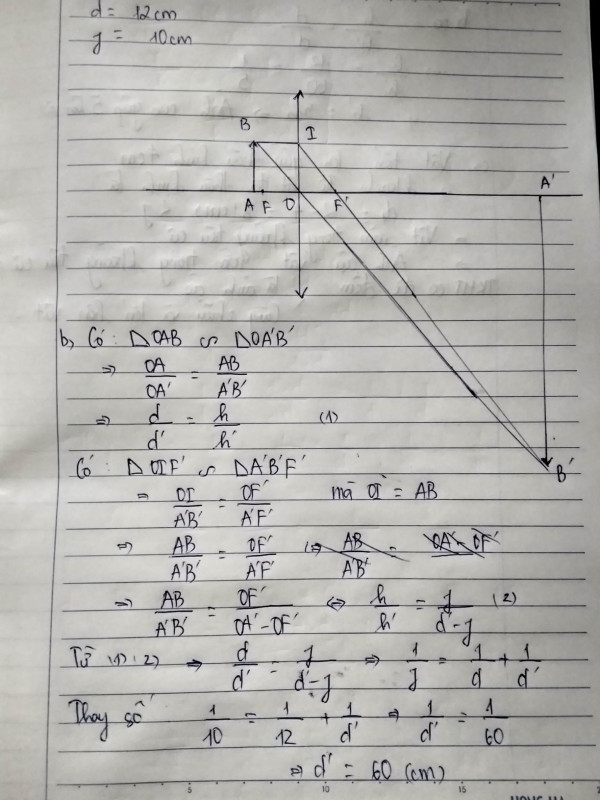 d = 12cm
f = 10cm
B I
A F O F' A'
B'
b, Có: ΔOAB ∽ ΔOA'B'
⇒ OA/OA' = AB/A'B'
⇒ d/d' = h/h' (1)
Có: ΔOIF' ∽ ΔA'B'F'
⇒ OI/A'B' = OF'/A'F' mà OI = AB
⇒ AB/A'B' = OF'/A'F' ⇒ AB/A'B' = OA' - OF'
⇒ AB/A'B' = OF'/OA'-OF' ⇔ h/h' = f/d'-f (2)
Từ (1)(2) ⇒ d/d' = f/d'-f ⇒ 1/f = 1/d + 1/d'
Thay số 1/10 = 1/12 + 1/d' ⇒ 1/d' = 1/60
⇒ d' = 60 (cm)
5 10 15